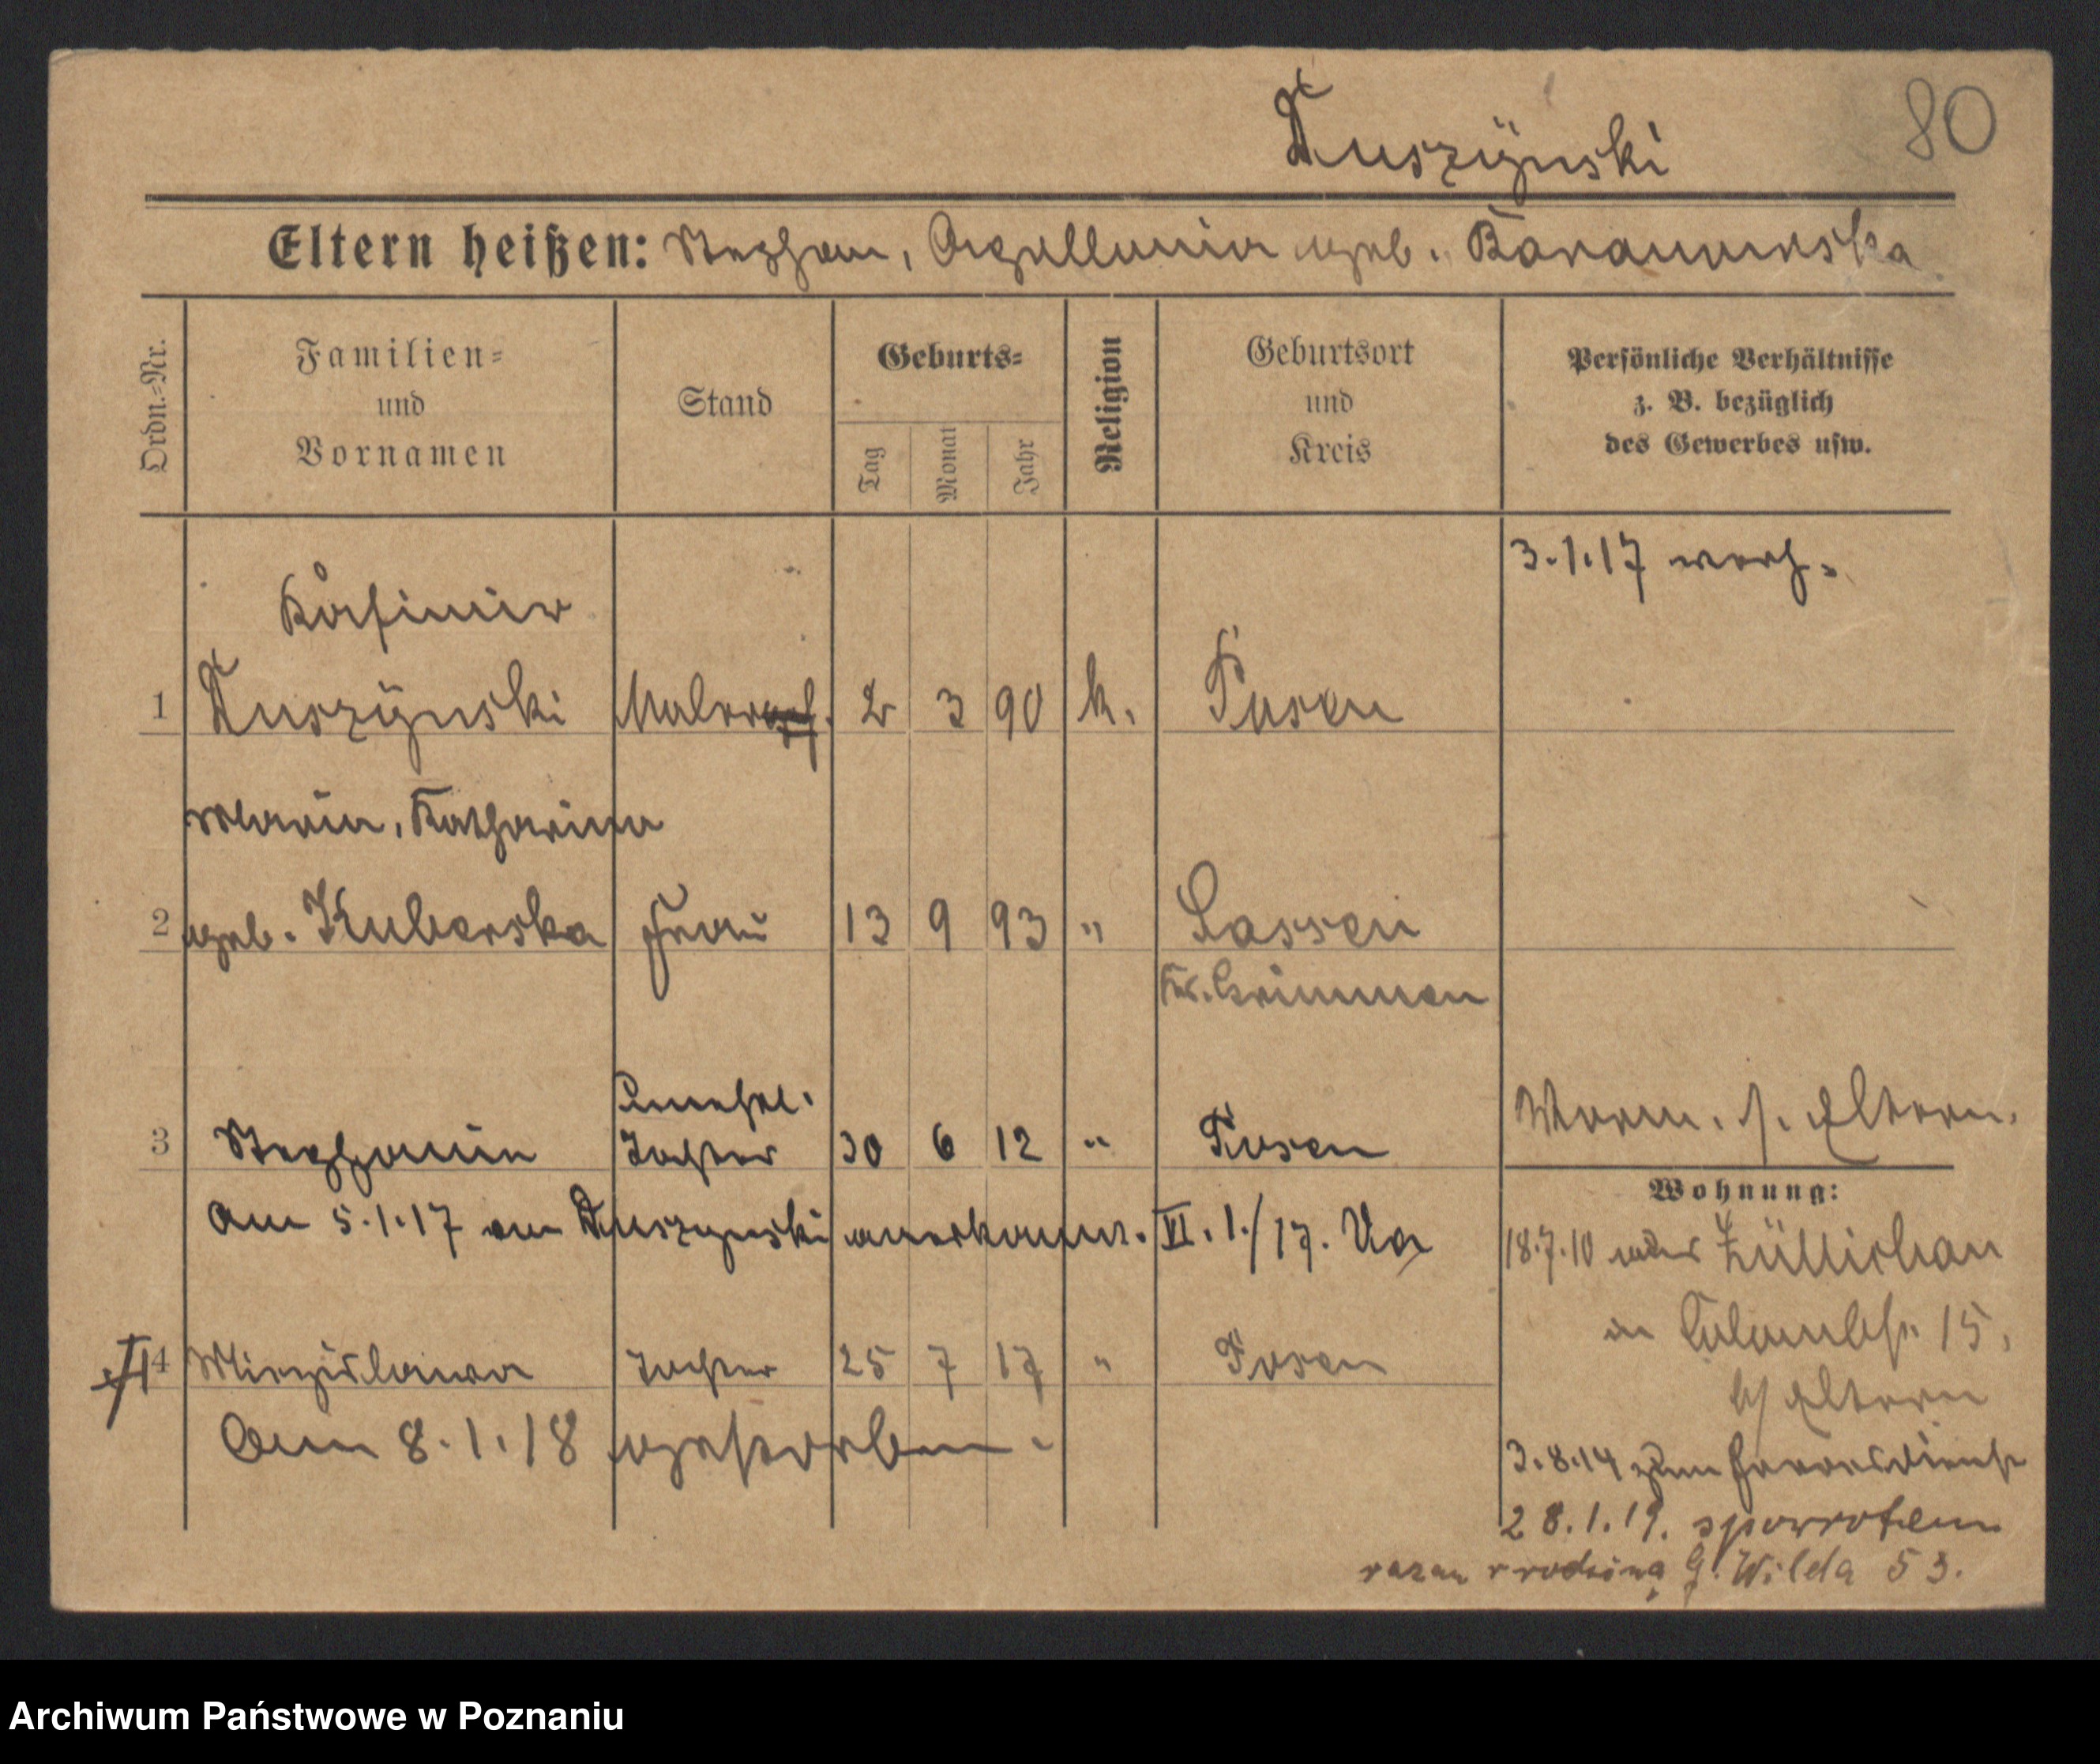 Duszyński
80
Eltern heißen: Stephan, Apollonia geb. Baranowska
Ordn.-Nr.
Familien-
und
Vornamen
Stand
Geburts-
Tag
Monat
Jahr
Religion
Geburtsort
und
Kreis
Persönliche Verhältnisse
z. B. bezüglich
des Gewerbes usw.
3.1.17 verh.
Kasimir
1 Duszyński Maler 2 3 90 k. Posen
Maria, Katharina
2 geb. Kuberska Frau 13 9 93 " Sassen
Kr. Grimmen
unehel.
3 Stephania Tochter 30 6 12 " Posen
Am 5.1.17 Duszynski anerkannt. VI. 1./17.
4 Miecislawa Tochter 25 7 17 " Posen
Am 8.1.18 gestorben.
Eltern.
Wohnung:
18.7.10 Züllichau
in Colombstr. 15,
b/ Eltern
3.8.14 zum Heeresdienst
28.1.19. z powrotem
razem z rodziną G. Wilda 53.
Archiwum Państwowe w Poznaniu